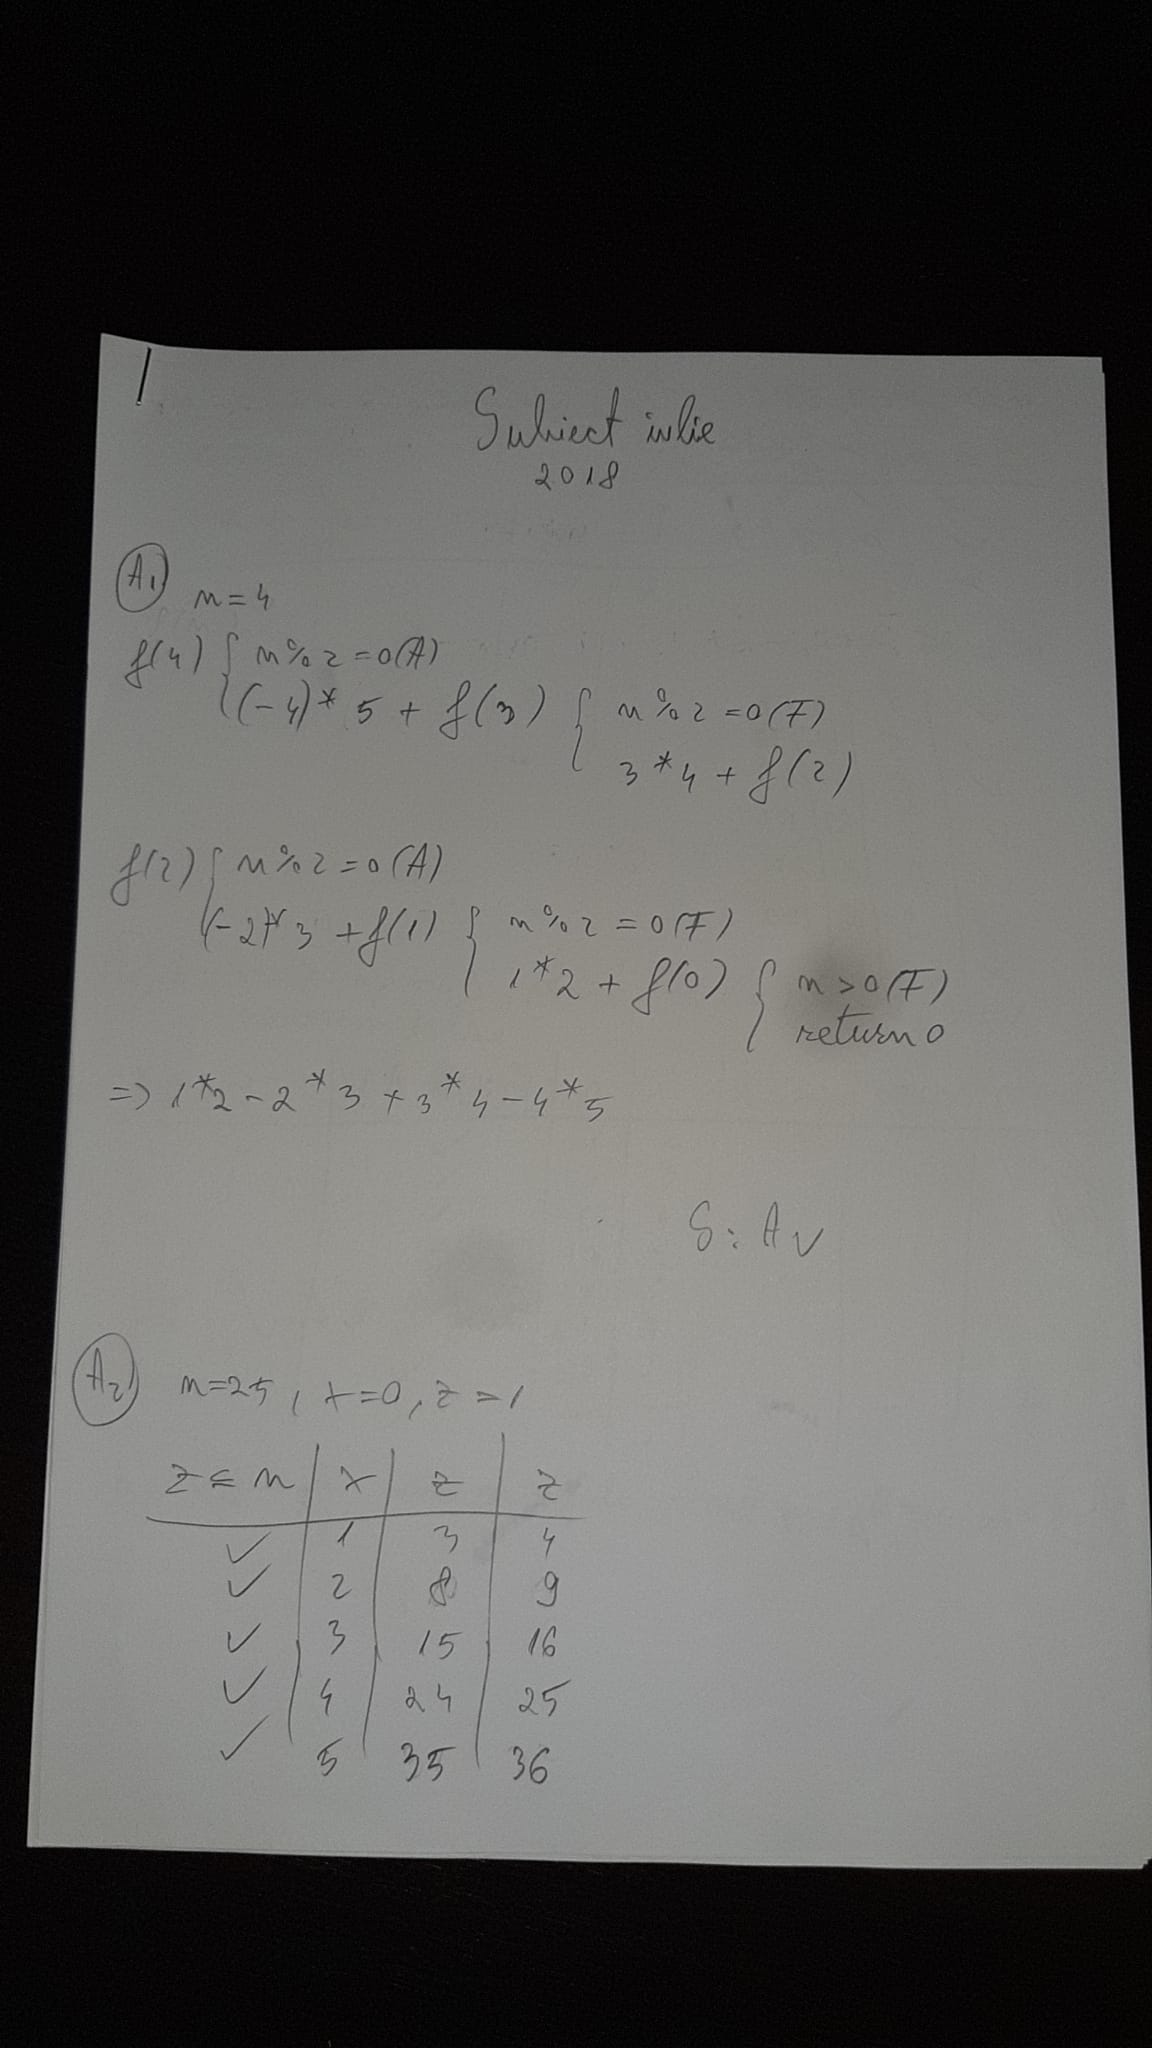 Subiect iulie
2018
A1
n=4
f(4) { n%2=0(A)
(-4)*5+f(3) { n%2=0(F)
3*4+f(2)
f(2) { n%2=0(A)
(-2)*3+f(1) { n%2=0(F)
1*2+f(0) { n>0(F)
return 0
=> 1*2-2*3+3*4-4*5
S: A ✓
A2 n=25, x=0, z=1
z≤n | x | z | z
✓ 1 3 4
✓ 2 8 9
✓ 3 15 16
✓ 4 24 25
✓ 5 35 36